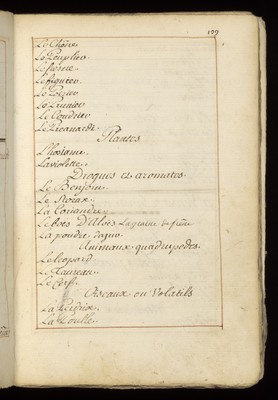 199
Le Chesne
Le Peuplier
Le fresne
Le figuier
Le Poirier
Le Prunier
Le Coudrier
Le
Plantes
La violette
Drogues et aromates
Le Benjoin
Le Storax
La Coriandre
Le bois D'Aloës La graine de
La poudre
Animaux quadrupedes
Le leopard
Le Taureau
Le Cerf
Oiseaux ou Volatils
La Perdrix
La Poulle